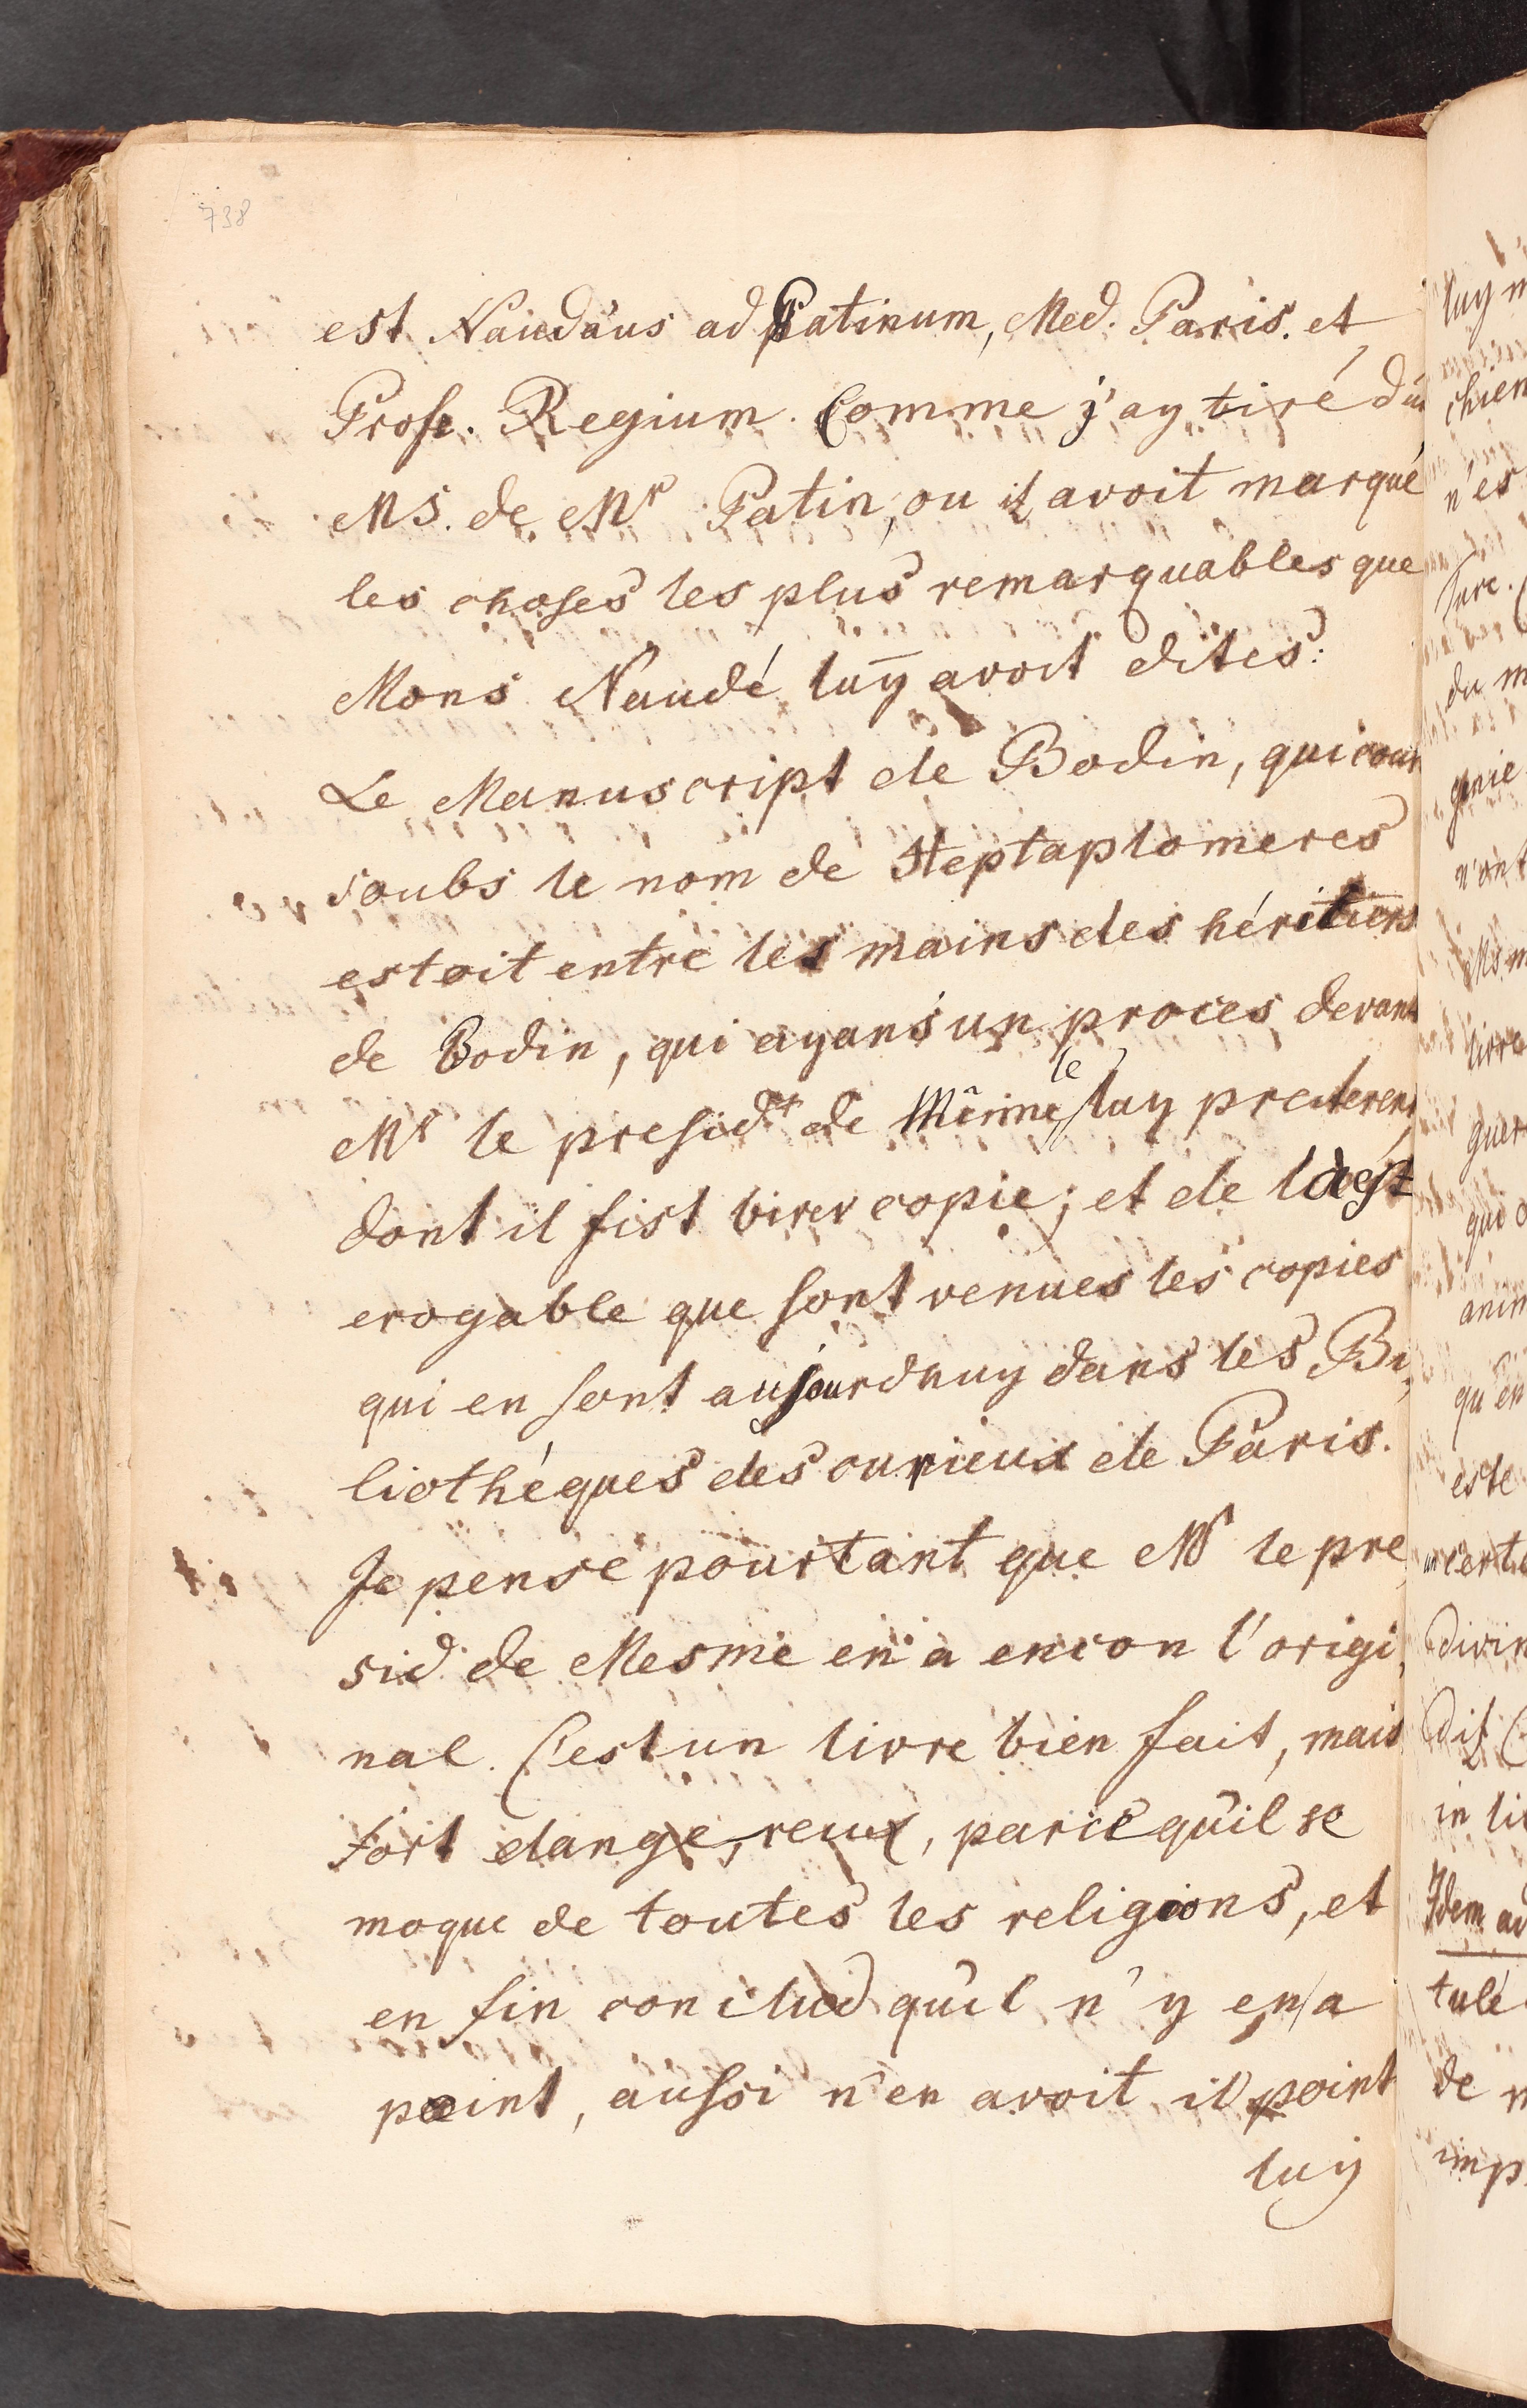 738
est Naudäus ad Patinum, Med. Paris. et
Profe. Regium. Comme j'ay tiré du
MS. de Mr Patin, ou il avoit marqué
les choses les plus remarquables que
Mons Naudé luy avoit dites:
Le Manuscript de Bodin, qui cour
soubs le nom de Heptaplomeres
estoit entre les mains des héritiers
de Bodin, qui ayans un proces devant
Mr le presidt de Mêrme le luy preterent
dont il fist tirer copie; et de la est
croyable que sont venues les copies
qui en sont aujourdhuy dans les Bi,
liothéques des curieux de Paris.
Je pense pourtant que Mr le pre,
sid de Mesme en a encon l'origi,
nal. C'est un livre bien fait, mais
fort dange,reux, parce qu'il se
moque de toutes les religions, et
en fin conclud qu'il n'y en a
point, aussi n'en avoit il point
luy
luy
chien
n'es
du m
genie
n'ont
Ms. m
livre
guer
qui
anim
qu'en
este
certi
divin
Dif
in li
Idem ad
tulé
de
imp.